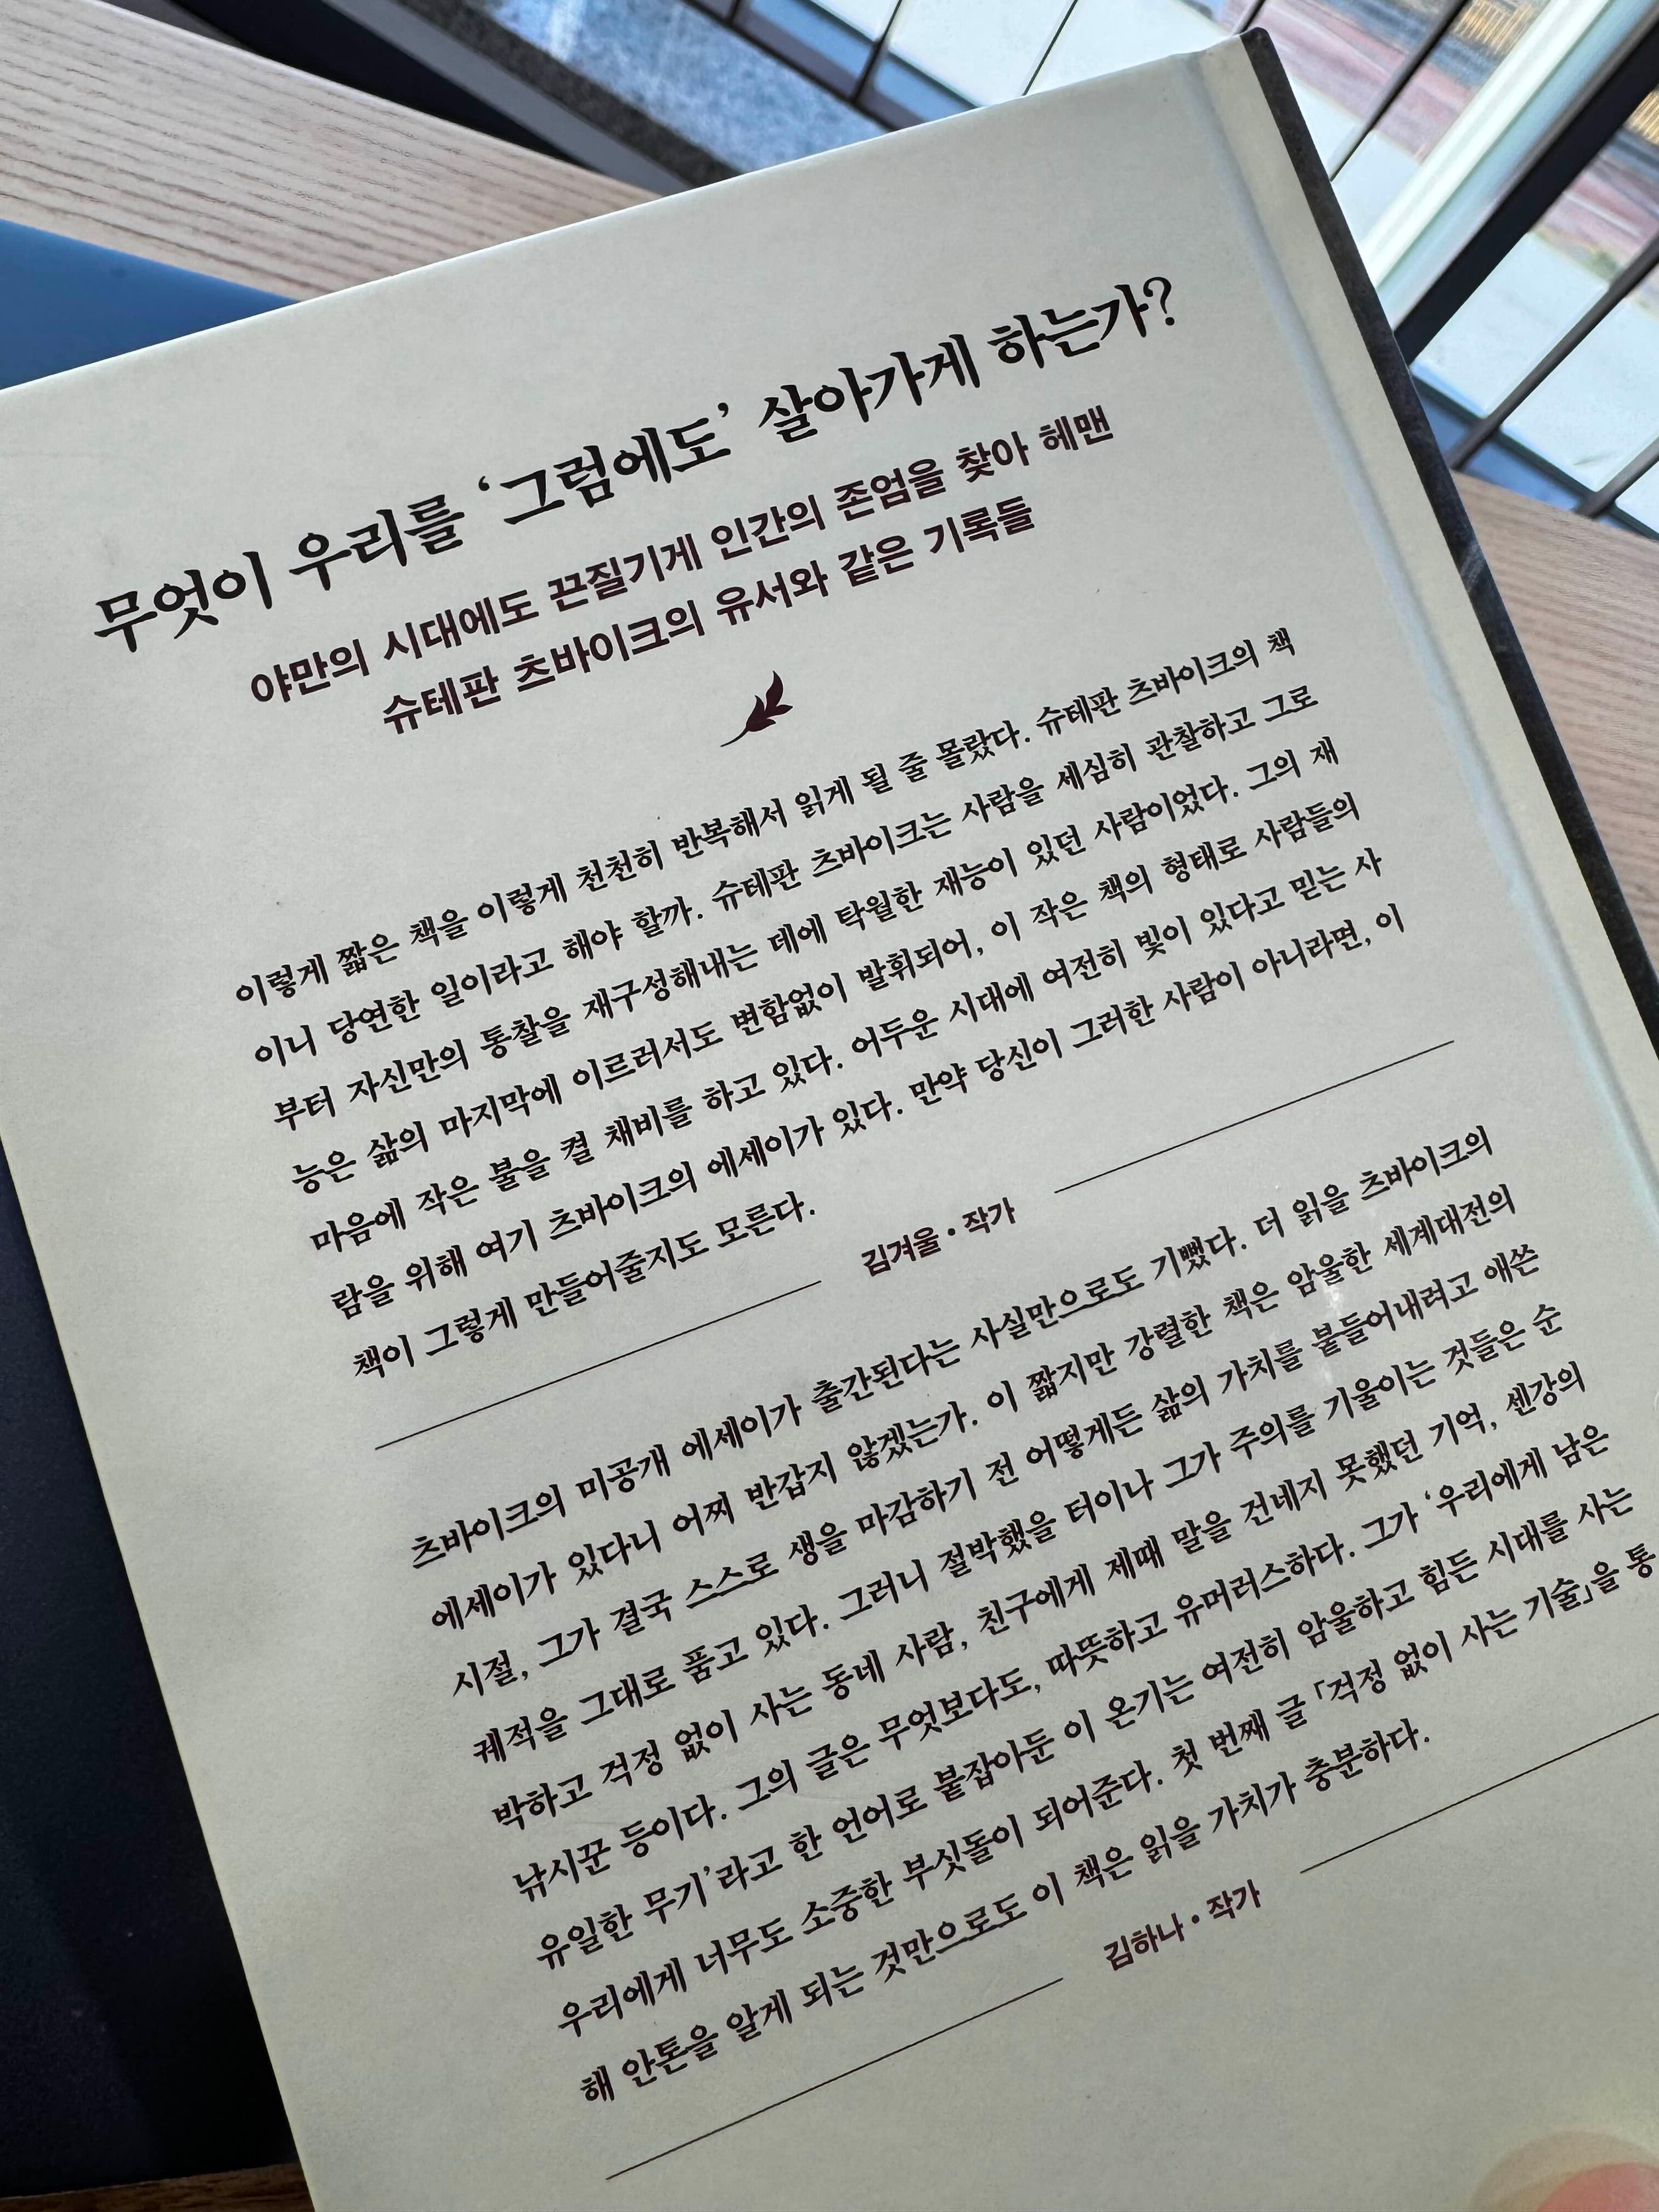 무엇이 우리를 ‘그럼에도’ 살아가게 하는가?
야만의 시대에도 끈질기게 인간의 존엄을 찾아 헤맨
슈테판 츠바이크의 유서와 같은 기록들
이렇게 짧은 책을 이렇게 천천히 반복해서 읽게 될 줄 몰랐다. 슈테판 츠바이크의 책
이니 당연한 일이라고 해야 할까. 슈테판 츠바이크는 사람을 세심히 관찰하고 그로
부터 자신만의 통찰을 재구성해내는 데에 탁월한 재능이 있던 사람이었다. 그의 재
능은 삶의 마지막에 이르러서도 변함없이 발휘되어, 이 작은 책의 형태로 사람들의
마음에 작은 불을 켤 채비를 하고 있다. 어두운 시대에 여전히 빛이 있다고 믿는 사
람을 위해 여기 츠바이크의 에세이가 있다. 만약 당신이 그러한 사람이 아니라면, 이
책이 그렇게 만들어줄지도 모른다.
김겨울 • 작가
츠바이크의 미공개 에세이가 출간된다는 사실만으로도 기뻤다. 더 읽을 츠바이크의
에세이가 있다니 어찌 반갑지 않겠는가. 이 짧지만 강렬한 책은 암울한 세계대전의
시절, 그가 결국 스스로 생을 마감하기 전 어떻게든 삶의 가치를 붙들어내려고 애쓴
궤적을 그대로 품고 있다. 그러니 절박했을 터이나 그가 주의를 기울이는 것들은 순
박하고 걱정 없이 사는 동네 사람, 친구에게 제때 말을 건네지 못했던 기억, 센강의
낚시꾼 등이다. 그의 글은 무엇보다도, 따뜻하고 유머러스하다. 그가 ‘우리에게 남은
유일한 무기’라고 한 언어로 붙잡아둔 이 온기는 여전히 암울하고 힘든 시대를 사는
우리에게 너무도 소중한 부싯돌이 되어준다. 첫 번째 글 「걱정 없이 사는 기술」을 통
해 안톤을 알게 되는 것만으로도 이 책은 읽을 가치가 충분하다.
김하나 • 작가